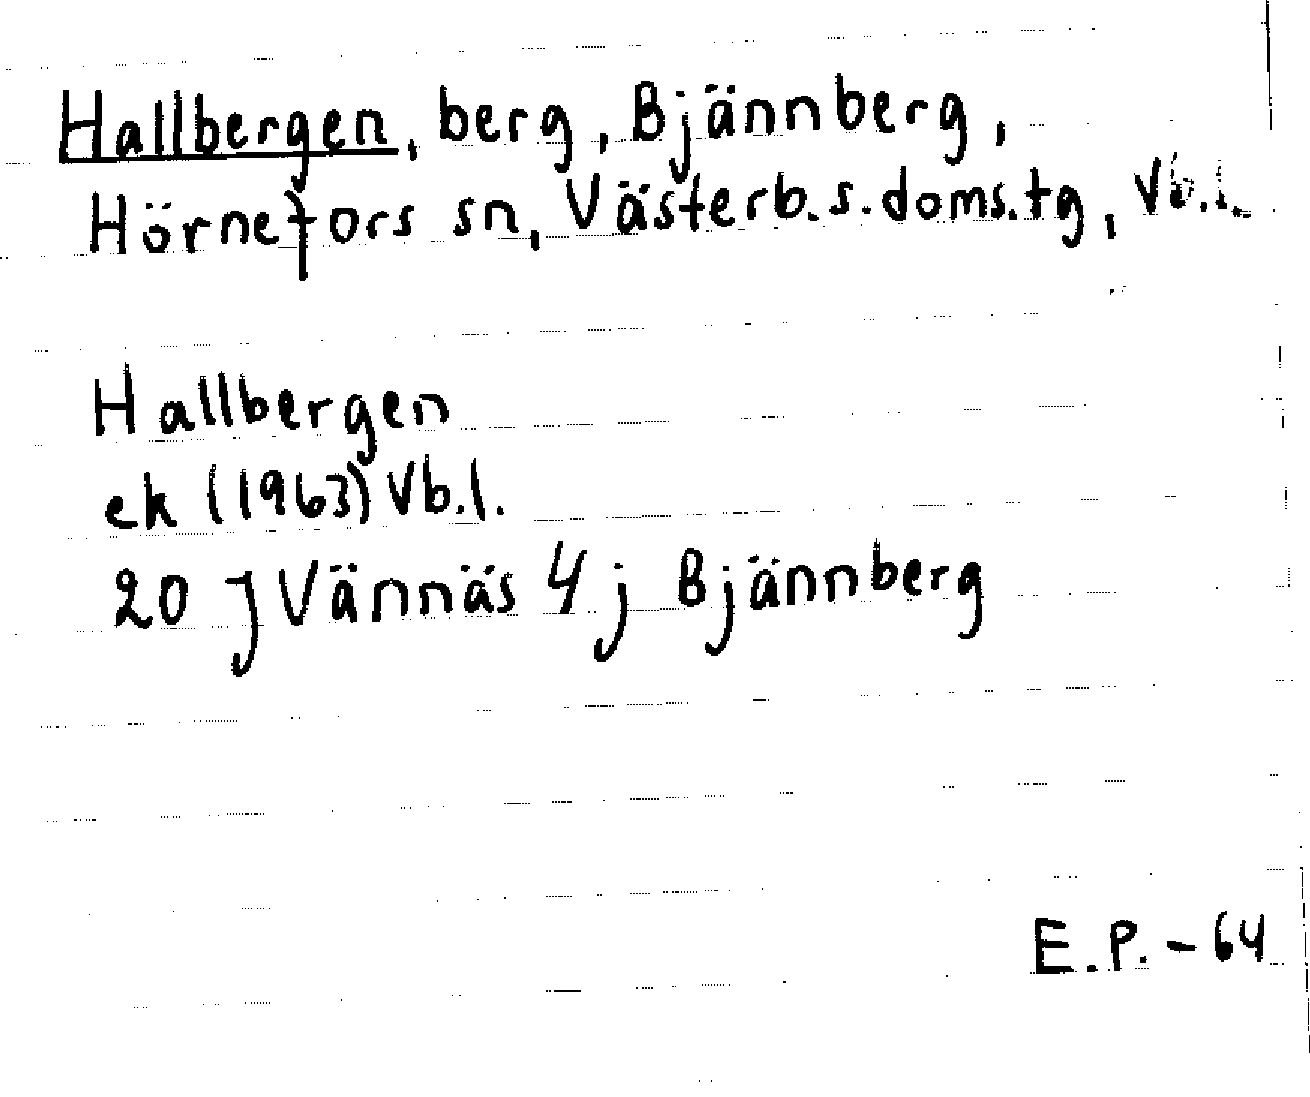 Hallbergen, berg, Bjännberg,
Hörnefors sn, Västerb.s.doms.tg, Vb.l.
Hallbergen
ek (1963) Vb.l.
20 J Vännäs 4 j Bjännberg
E.P. - 64